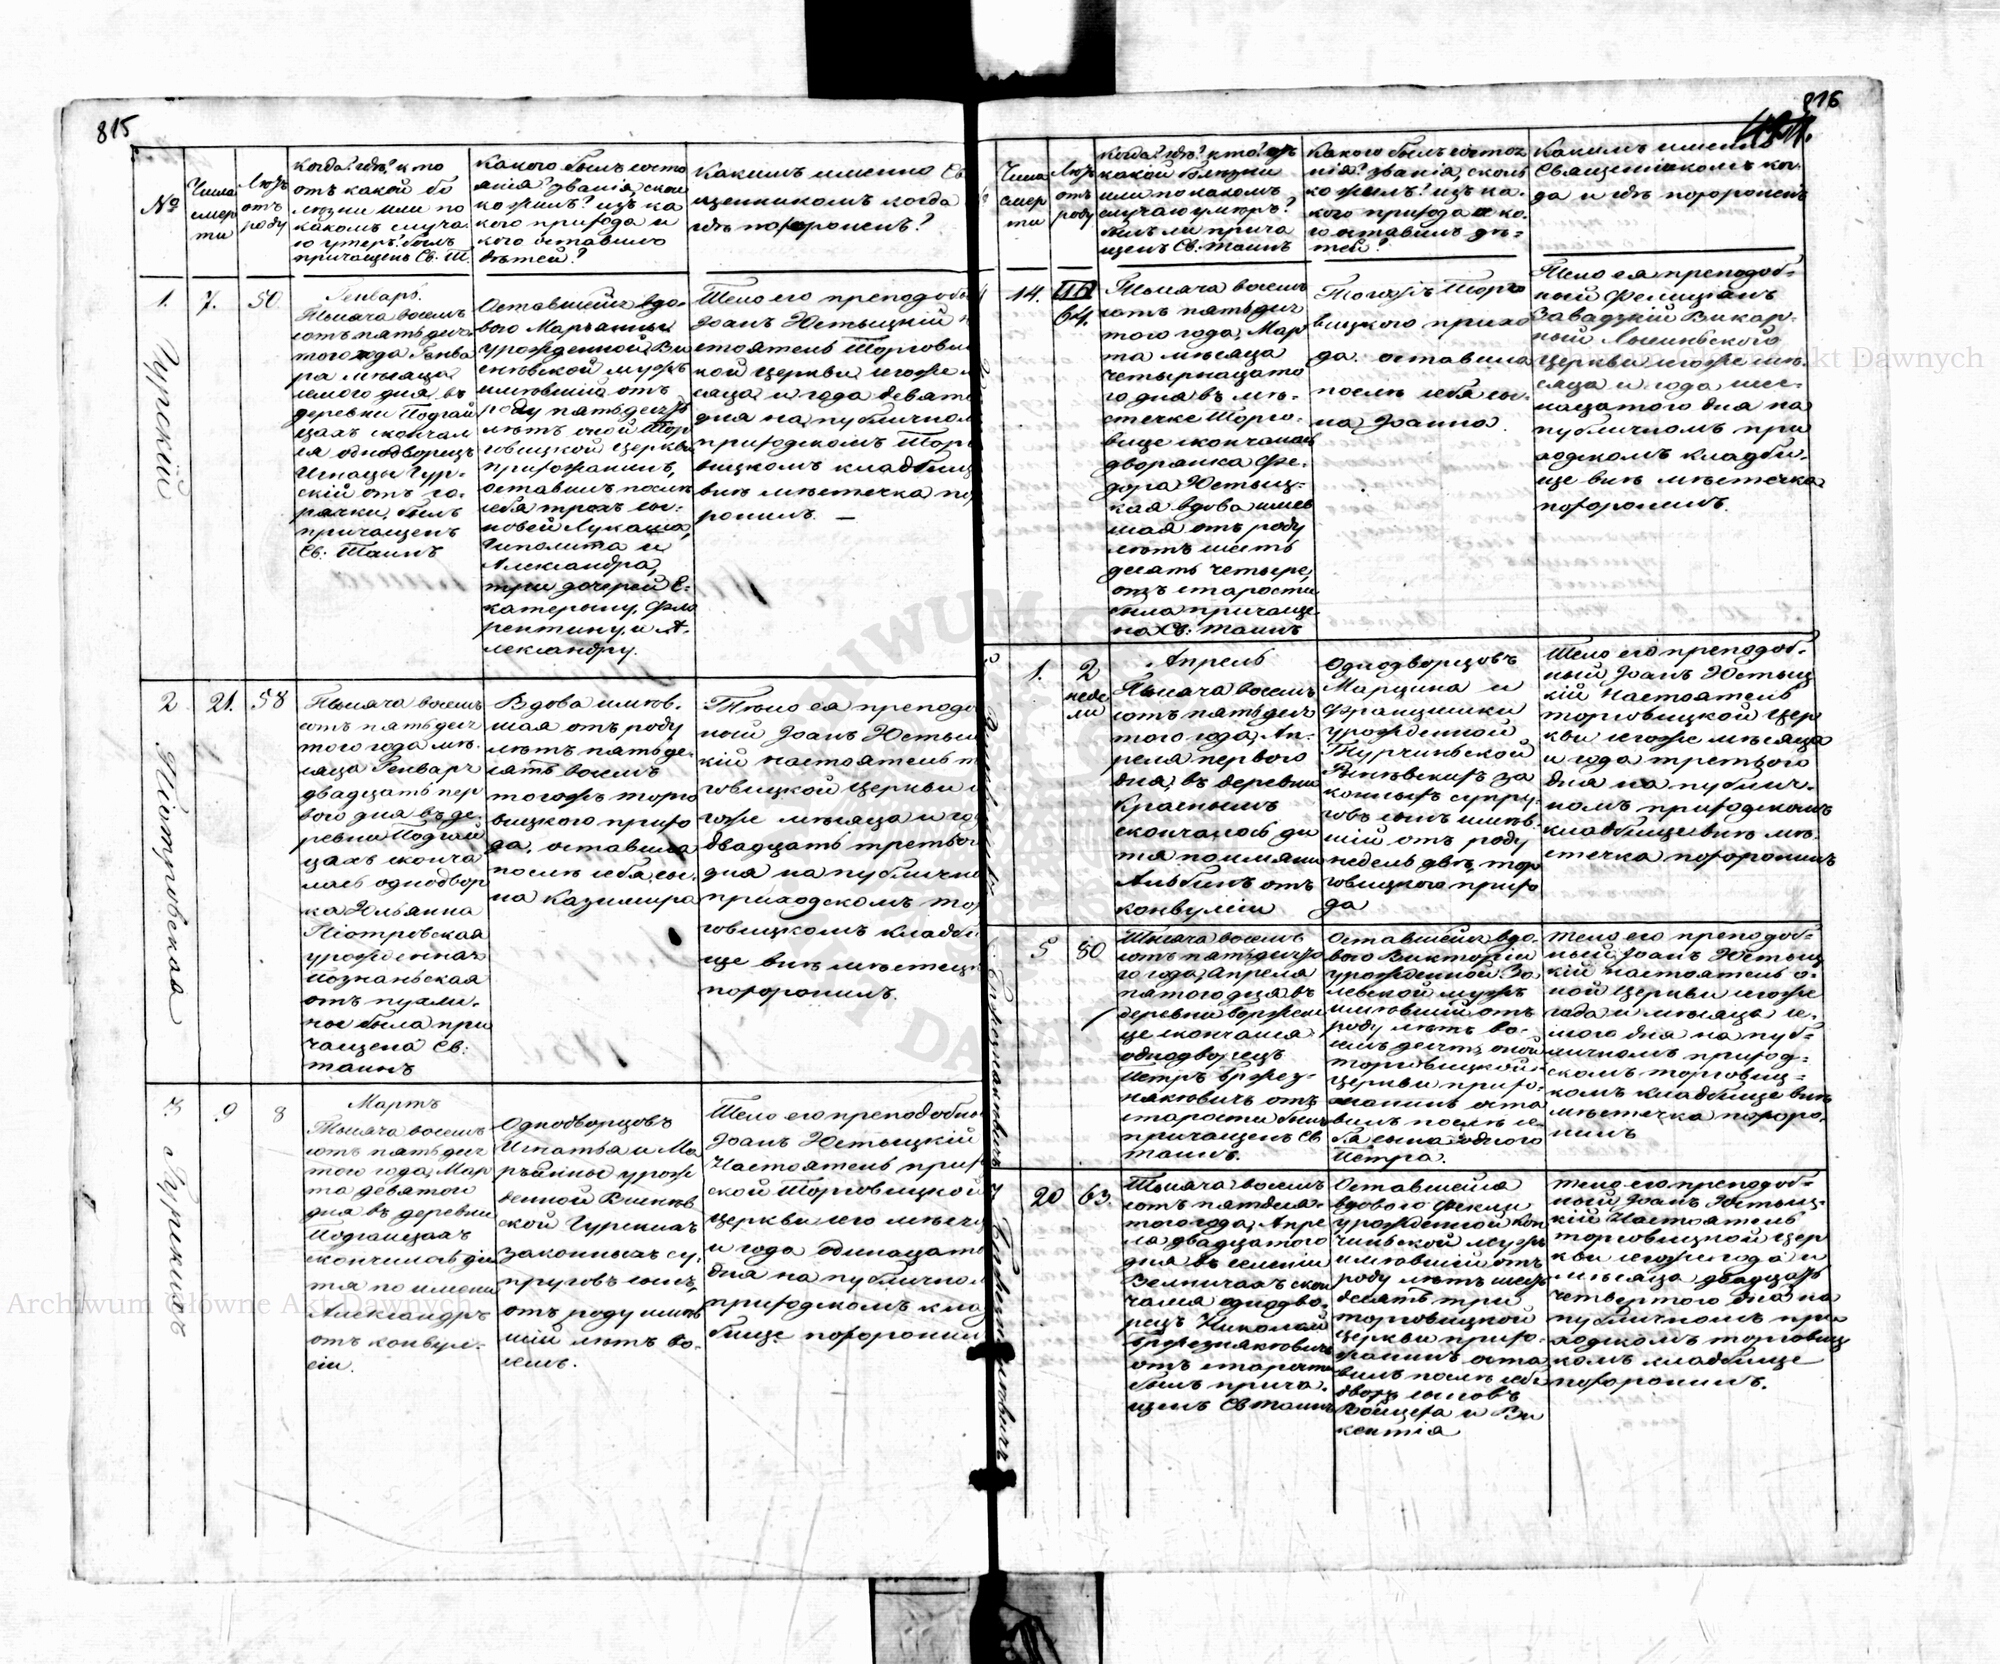 815
№
Числа
смер
ти
Лѣтъ
отъ
роду
Когда? гдѣ? кто
отъ какой бо
лѣзни или по
какомъ случа
ю умеръ? былъ
причащенъ Св. Т.
Какого былъ состо
янія? званія, скол
ко жилъ? изъ ка
кого прихода и
кого оставилъ
дѣтей?
Какимъ именно Св
щенникомъ когда
гдѣ похороненъ?
1.
7.
50
Гурскій
Генварь.
Тысяча восемъ
сотъ пятьдеся
того года Генва
ра мѣсяца
семого дня въ
деревни Подгай
цахъ скончал
ся однодворецъ
Игнацы Гур-
скій отъ го-
рячки, былъ
причащенъ
Св: Таинъ
Оставшейся вдо-
вою Марьанны
урожденной Ви
снѣвской мужъ
имѣвшій отъ
роду пятьдесятъ
лѣтъ оной Тор
говицкой церкви
прихожанинъ,
оставилъ послѣ
себя трохъ сы-
новей Лукаша,
Гиполита и
Александра,
три дочерей Е-
катерыну, Фло
рентину, и А-
лександру.
Тело его преподобн
Іоанъ Хстыцкій н
стоятель Торгови
кой церкви, тогоже м
сяца и года девято
дня на публичном
приходскомъ Торг
вицкомъ кладбищ
внѣ мѣстечка пох
ронилъ. —
2
21.
58
Піотровская
Тысяча восемъ
сотъ пятьдеся
того года мѣ-
сяца Генваря
двадцать пер
вого дня въ де-
ревни Подгай
цахъ сконча
лась однодвор
ка Юльянна
Піотровская
урожденная
Познаньская
отъ пухли-
ны была при
чащена Св:
таинъ
Вдова имѣв-
шая отъ роду
лѣтъ пятьде-
сятъ восемъ
тогожъ торго
вицкого прихо
да, оставила
послѣ себя сы-
на Казимира
Тѣло ея преподо
ный Іоанъ Хстыц
кій настоятель т
говицкой церкви
гоже мѣсяца и го
двадцать третьо
дня на публично
приходскомъ тор
говицкомъ кладби
ще внѣ мѣстечк
похоронилъ.
3
9
8
Гурскій
Мартъ
Тысяча восемъ
сотъ пятьдеся
того года, Мар
та девятого
дня въ деревни
Подгайцахъ
скончилось ди
тя по имени
Александръ
отъ конвул-
сіи.
Однодворцовъ
Игнатья и Ма
рьянны урож
денной Виснѣв
ской Гурскихъ
законныхъ су-
пруговъ сынъ,
отъ роду имѣв
шій лѣтъ во-
семъ.
Тело его преподобны
Іоанъ Хстыцкій
Настоятель прихо
ской Торговицкой
церкви сего мѣсяц
и года одинацато
дня на публичном
приходскомъ клад
бище похоронил
816
Числа
смер
ти
Лѣтъ
отъ
роду
Когда? гдѣ? кто? отъ
какой болѣзни
или по какомъ
случаю умеръ?
былъ ли прича
щенъ Св: таинъ
Какого былъ состоя
нія? званія, сколь
ко жилъ? изъ ка-
кого прихода и ко-
го оставилъ дѣ-
тей?
Какимъ именно
Священникомъ ког-
да и гдѣ похороненъ
14.
64.
Тысяча восемъ
сотъ пятьдеся
того года, Мар
та мѣсяца
четырнацато
го дня въ мѣ-
стечке Торго-
вице скончалась
дворянка Фе-
дора Хстыц-
кая вдова имев
шая отъ роду
лѣтъ шесть
десятъ четыре,
отъ старости,
была причаще
на Св: таинъ
Тогожъ Торго
вицкого прихо
да оставила
послѣ себя сы-
на Іоанна.
Тело ея преподоб-
ный Фелиціанъ
Завадзкій Викар-
ный
церкви тогоже мѣ-
сяца и года шес-
нацатого дня на
публичномъ при
ходскомъ кладби-
ще внѣ мѣстечка
похоронилъ.
1.
2
неде
ли
Апрель
Тысяча восемъ
сотъ пятьдеся
того года, Ап-
реля первого
дня, въ деревни
Краснымъ
скончалось ди
тя по имени
Альбинъ отъ
конвулсіи
Однодворцовъ
Марцина и
Францишки
урожденной
законныхъ супру-
говъ сынъ имѣв-
шій отъ роду
недель двѣ, тор
говицкого прихо
да
Тело его преподоб-
ный Іоанъ Хстыц
кій Настоятель
торговицкой цер
кви тогоже мѣсяца
и года третього
дня на публич-
номъ приходскомъ
кладбище внѣ мѣ-
стечка похоронилъ
5
80
Тысяча восемъ
сотъ пятьдесято
го года, Апреля
пятого дня въ
деревни Боржем
це скончался
однодворецъ
Петръ Бржез-
няковичъ отъ
старости былъ
причащенъ Св.
таинъ.
Оставшейся вдо-
вою Викторіи
урожденной Зо-
левской мужъ
имѣвшій отъ
роду лѣтъ во-
семъ десятъ, оной
торговицкой
церкви прихо-
жанинъ оста
вилъ послѣ се-
бя сына одного
Петра.
Тело его преподоб-
ный Іоанъ Хстыц
кій настоятель о-
ной церкви тогоже
года и мѣсяца се-
мого дня на пуб-
личномъ приход-
скомъ торговиц-
комъ кладбище внѣ
мѣстечка похоро-
нилъ
20
63.
Тысяча восемъ
сотъ пятдеся-
того года, Апре
ля двадцатого
дня въ селеніи
Величахъ скон
чался однодво-
рецъ Николай
Бржезняковичъ
отъ старости
былъ прича-
щенъ Св таинъ
Оставшейся
вдового Феклы
урожденной Кон
чинской мужъ
имѣвшій отъ
роду лѣтъ шесть
десятъ три
торговицкой
церкви прихо-
жанинъ оста
вилъ послѣ себя
двохъ сыновъ
Войцеха и Ви
кентія
тело его преподоб-
ный Іоанъ Хстыц-
кій Настоятель
торговицкой цер
кви тогоже года и
мѣсяца двадцать
четвертого дня на
публичномъ при
ходскомъ торговиц
комъ кладбище
похоронилъ.
Archiwum Główne Akt Dawnych
Akt Dawnych